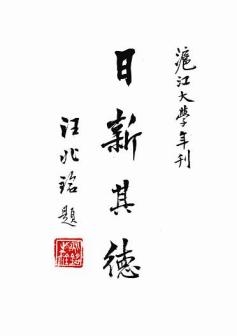 滬江大學年刊
日新其德
汪兆銘題